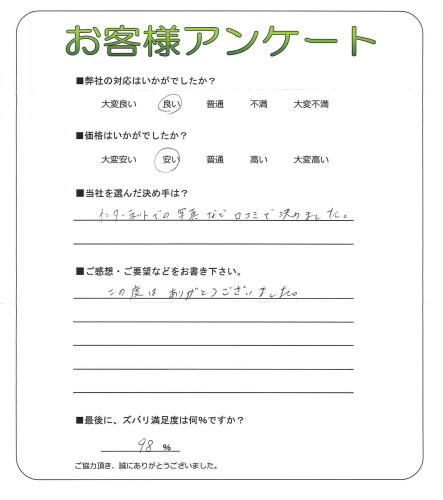 お客様アンケート
■弊社の対応はいかがでしたか？
大変良い 良い 普通 不満 大変不満
■価格はいかがでしたか？
大変安い 安い 普通 高い 大変高い
■当社を選んだ決め手は？
インターネットでの写真など口コミで決めました。
■ご感想・ご要望などをお書き下さい。
この度はありがとうございました。
■最後に、ズバリ満足度は何％ですか？
98 %
ご協力頂き、誠にありがとうございました。